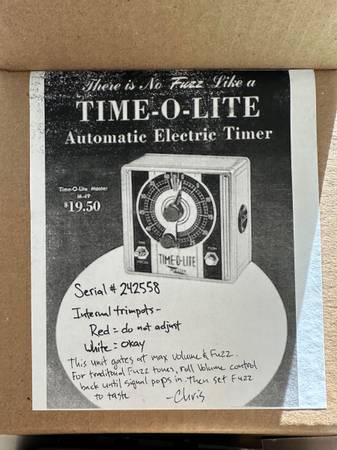 There is No Fuzz Like a
TIME-O-LITE
Automatic Electric Timer
Time-O-Lite Master
M-49
$19.50
TIME-O-LITE
Serial # 242558
Internal trimpots-
Red = do not adjust
White = okay
This unit gates at max Volume & Fuzz.
For traditional Fuzz tones, roll Volume control
back until signal pops in. Then set Fuzz
to taste
-Chris